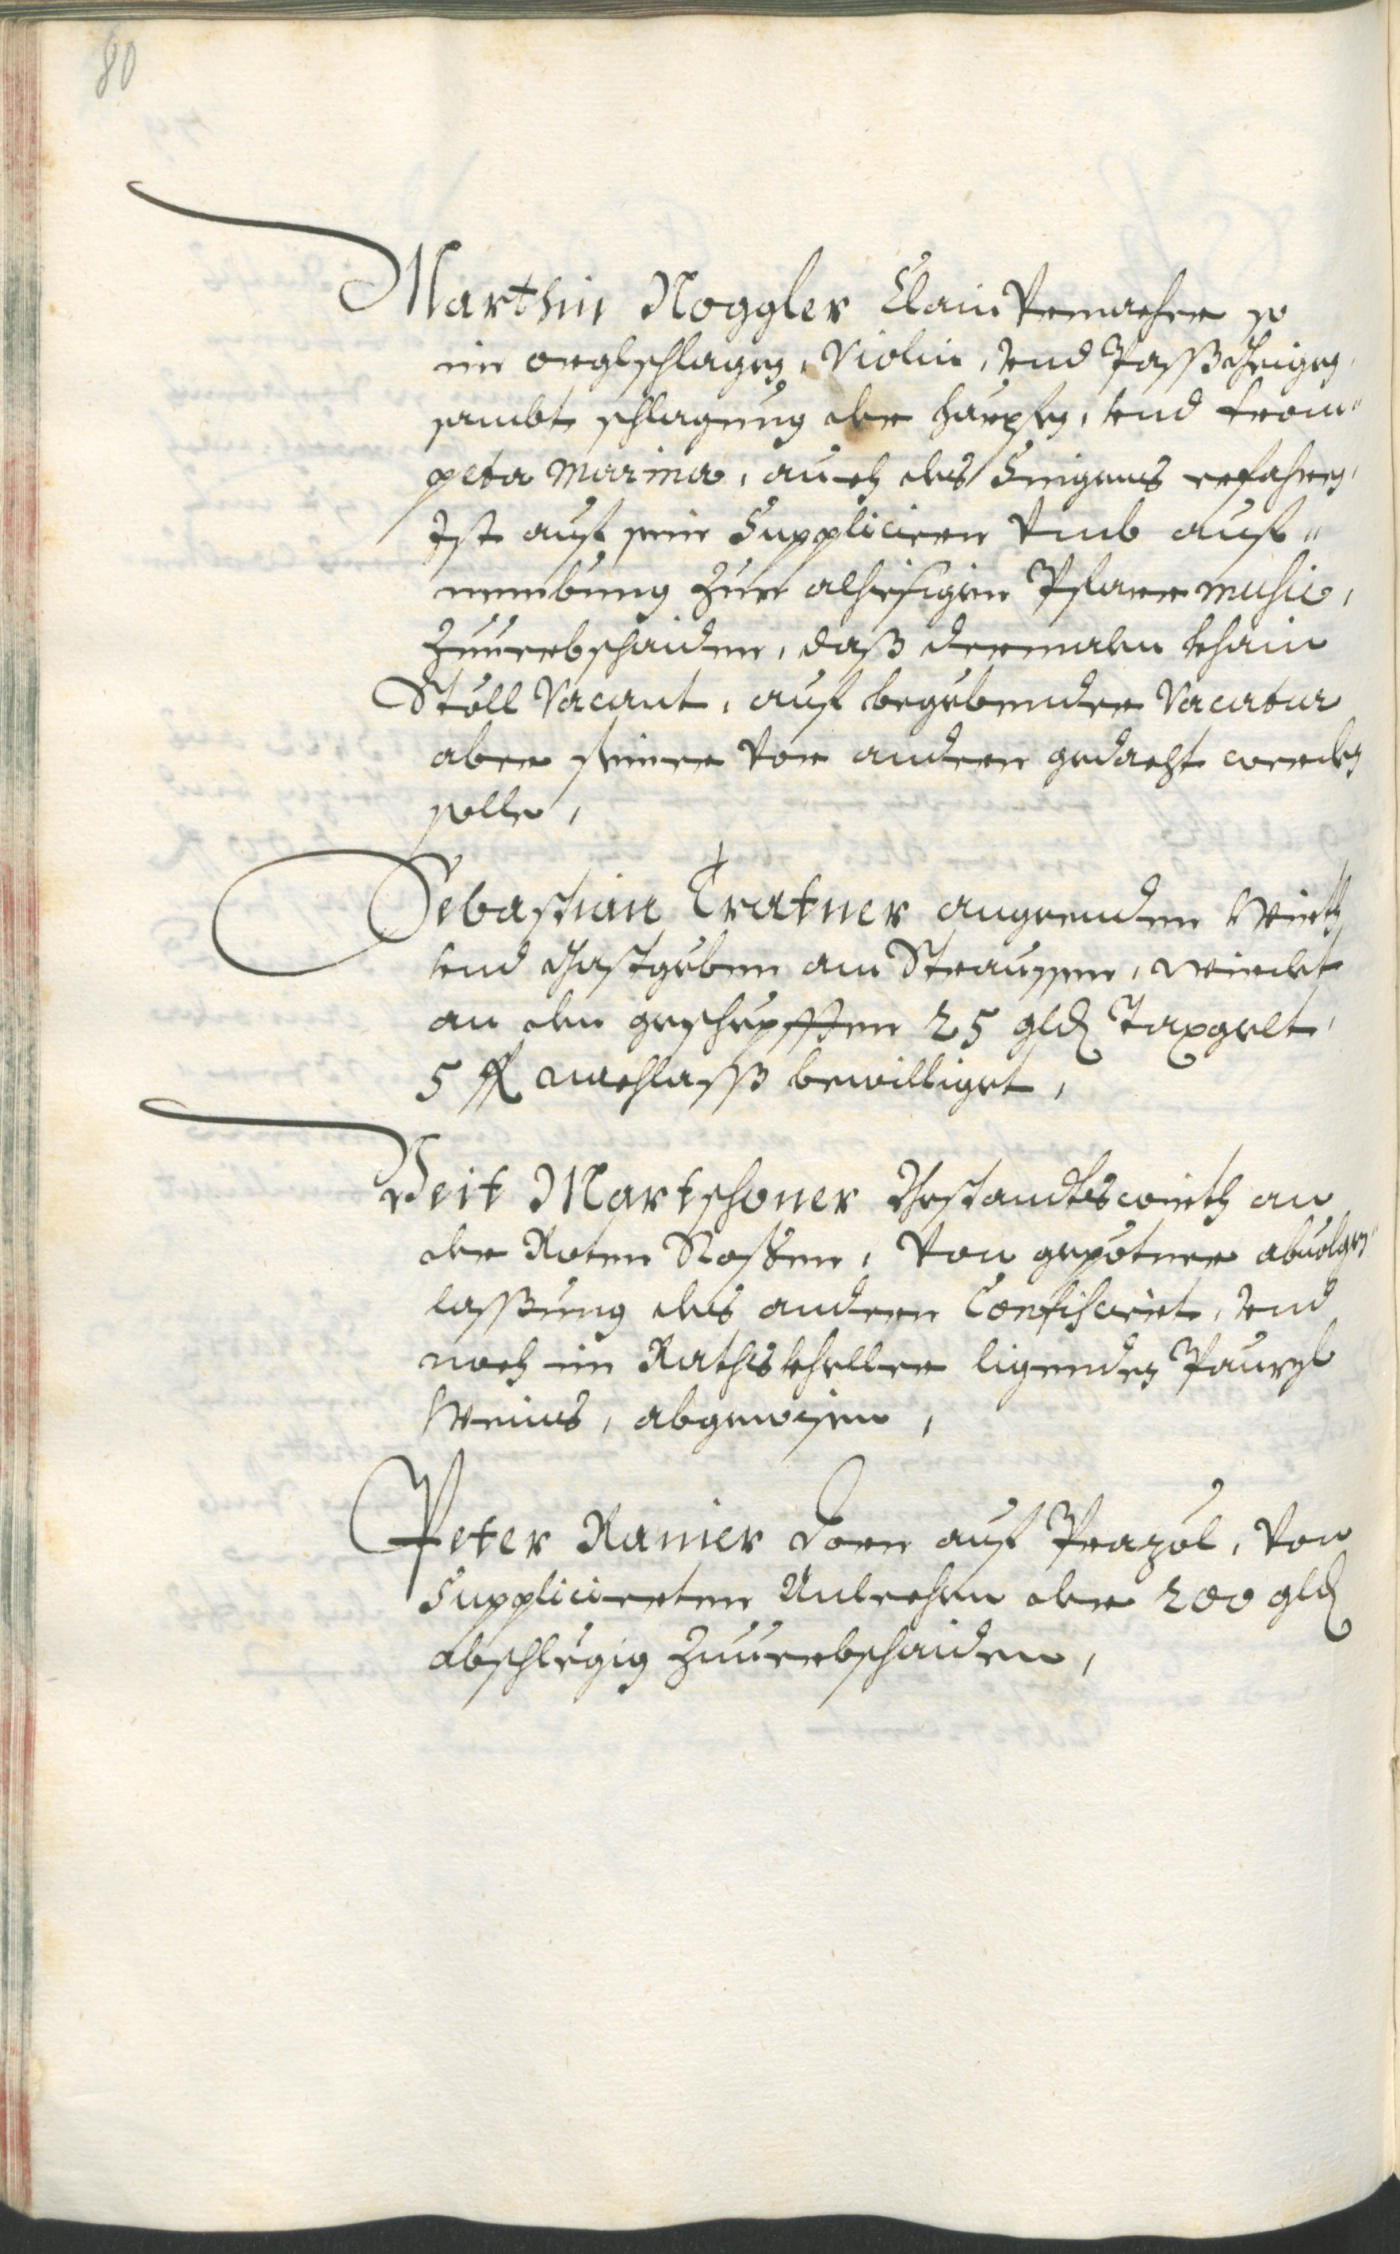 80
Marthin Noggler Clain Vrmacher so
im orglschlagen, Violin, vnd Passgeigen,
sambt schlagung der harpfen, vnd trom¨
peta marina, auch des Singens erfahren,
Ist auf sein Supplicieren vmb auf¨
nembung zur alhiesigen Pfarr music,
zuuerbschaiden, daß dermalen khain
Stöll Vacant, auf begebender Vacatur
aber seiner vor andern gedacht werden
solle,
Sebastian Tratner angeenden Wirth
vnd Gastgeben am Straussen, wirdet
an den geschepfften 25 gld Taxgelt,
5 fl nachlass bewilliget,
Veit Martschoner Bestandtswirth an
der Roten Rosen, von gepotner abuolgen¨
lassung des andern Confiscirt, vnd
noch im Rathskheller ligenden Panzl
Weins, abgewisen,
Peter Ranier Dorn auf Prazöl, von
Supplicierten Anlechen der 200 gld
abschlegig zuuerbschaiden,